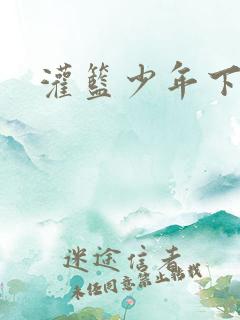 灌篮少年下
迷途信者
未经同意禁止转载